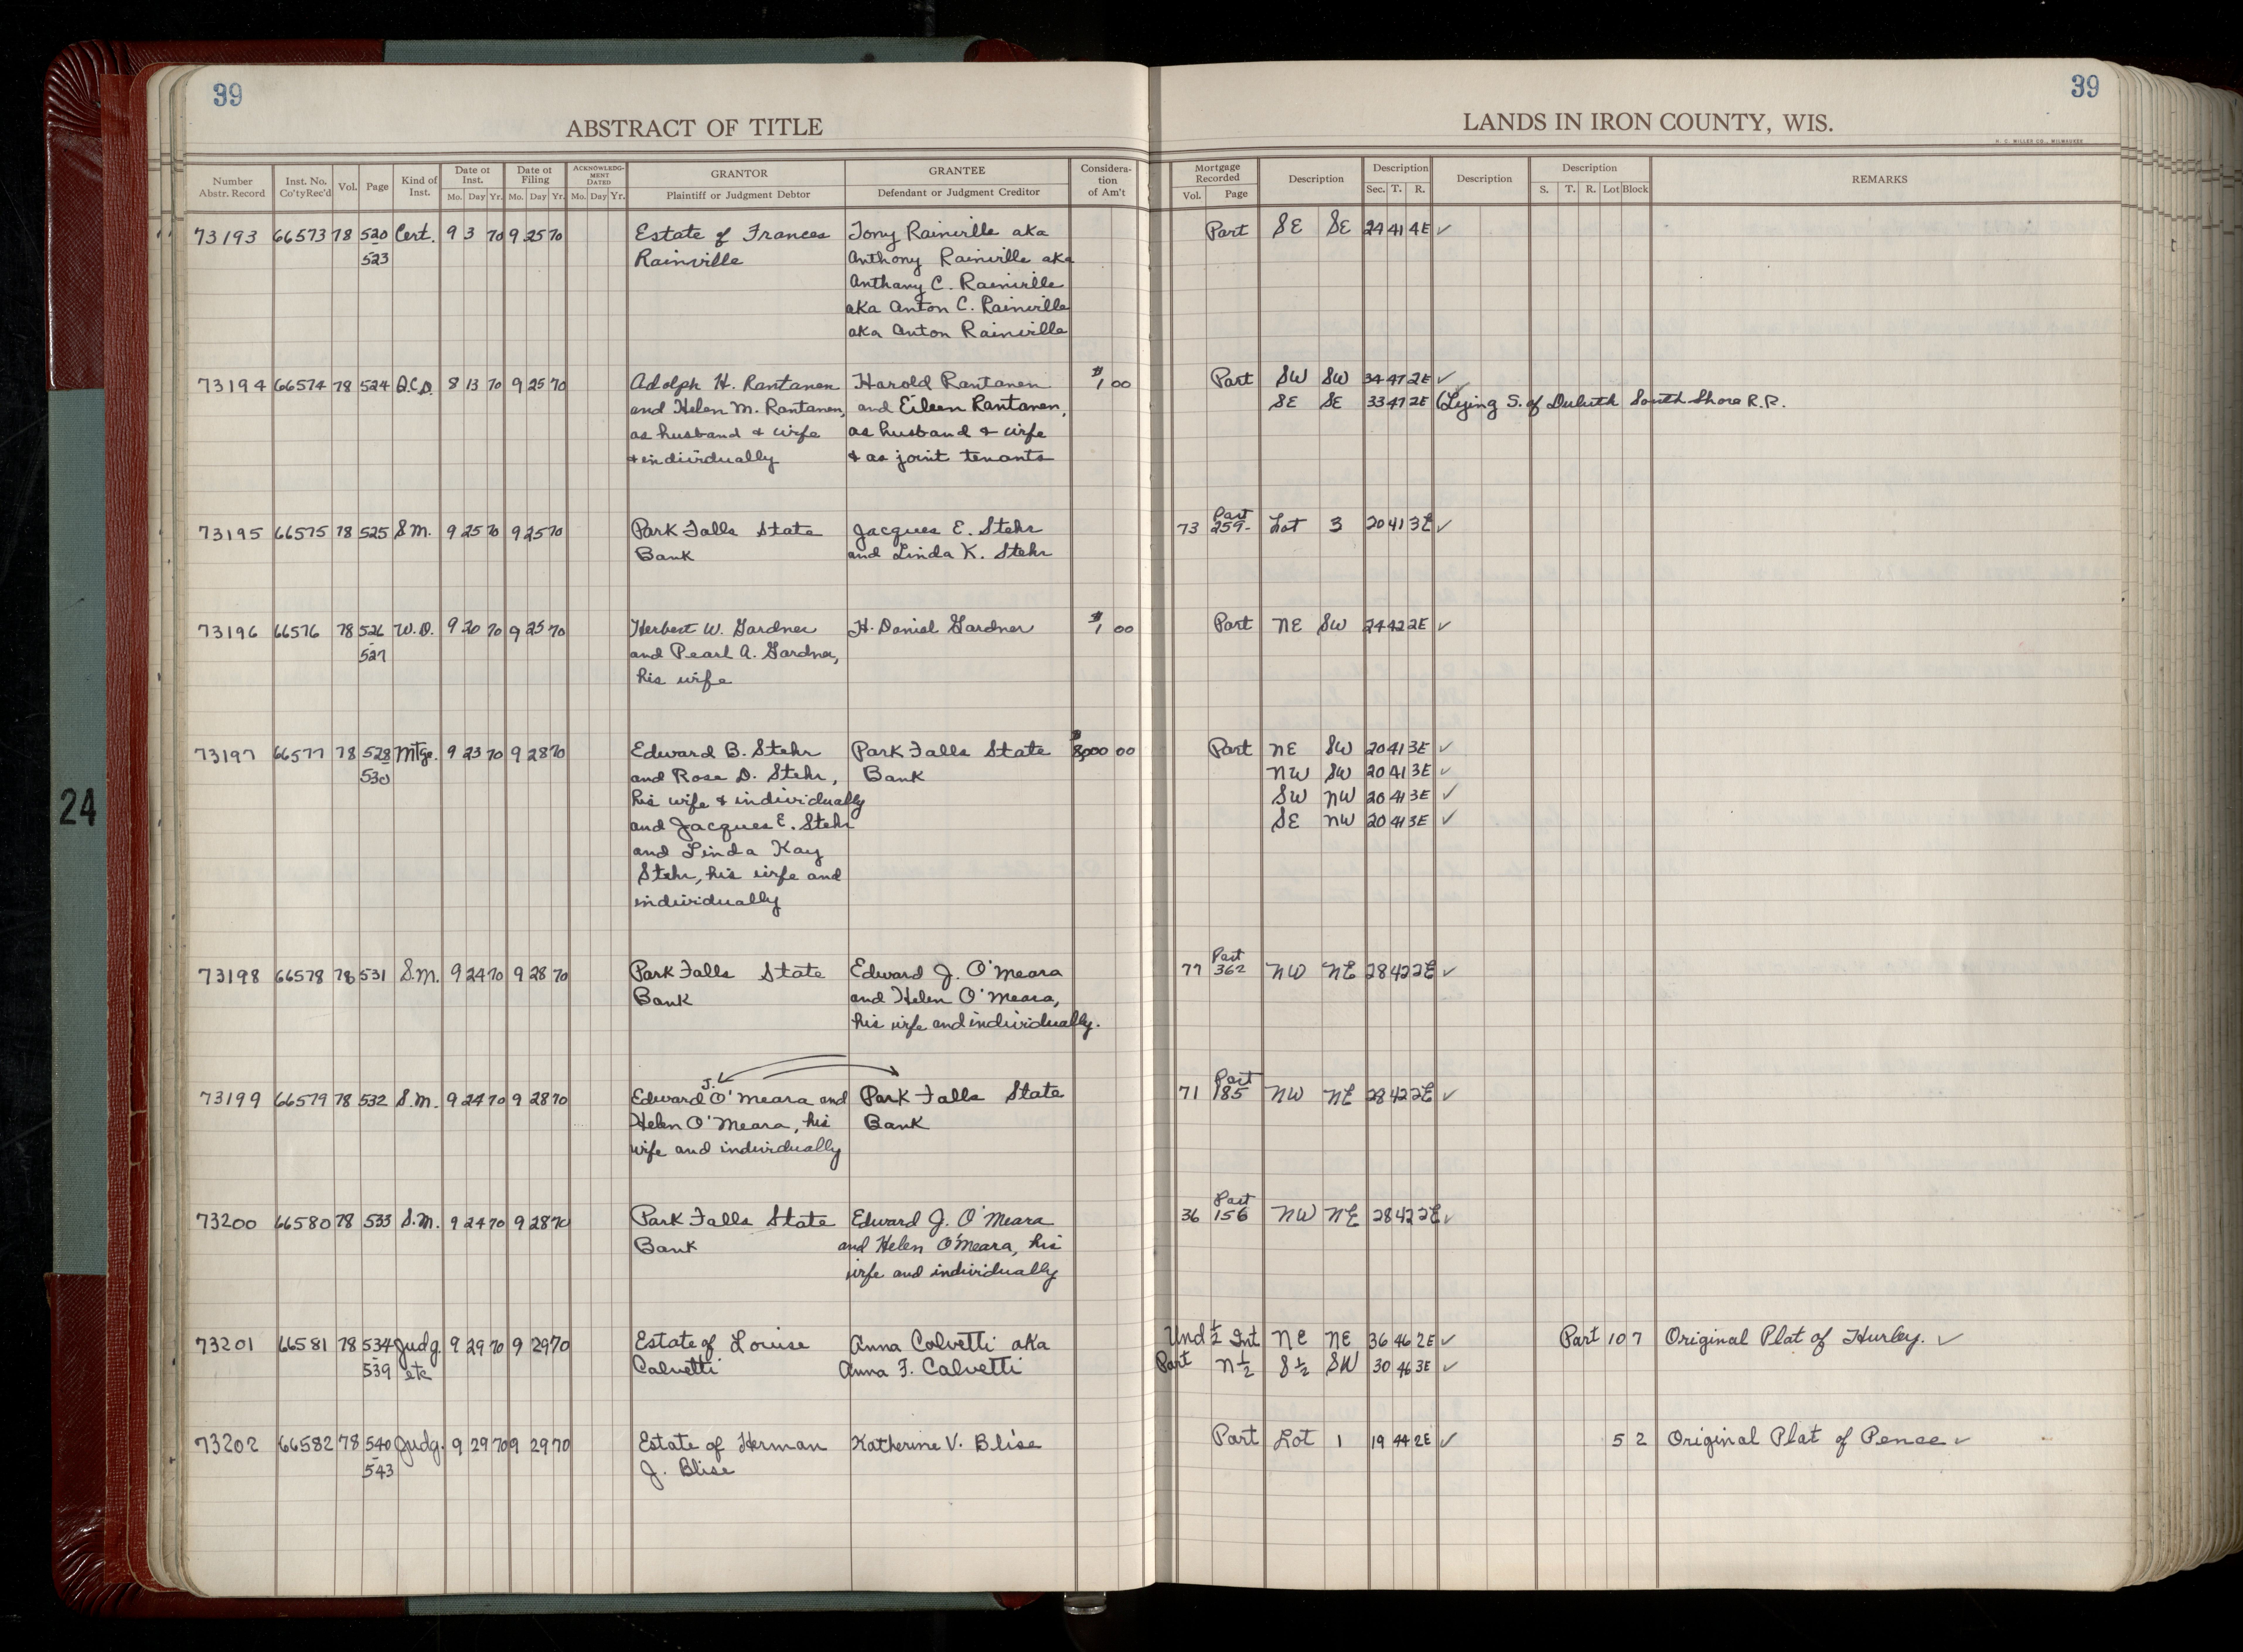 39
39
ABSTRACT OF TITLE
LANDS IN IRON COUNTY, WIS.
H. C. MILLER CO., MILWAUKEE
Number Abstr. Record Inst. No. Co'tyRec'd Vol. Page Kind of Inst. Date of Inst. Mo. Day Yr. Date of Filing Mo. Day Yr. ACKNOWLEDGMENT DATED Mo. Day Yr. GRANTOR Plaintiff or Judgment Debtor GRANTEE Defendant or Judgment Creditor Consideration of Am't Mortgage Recorded Vol. Page Description Description Sec. T. R. Description Description S. T. R. Lot Block REMARKS
73193 66573 78 520 Cert. 9 3 70 9 25 70 Estate of Frances Tony Rainville aka Part SE SE 24 41 4E ✓
523 Rainville Anthony Rainville aka
Anthany C. Rainville
aka Anton C. Rainville
aka Anton Rainville
73194 66574 78 524 Q.C.D. 8 13 70 9 25 70 Adolph H. Rantanen Harold Rantanen $1 00 Part SW SW 34 47 2E ✓
and Helen M. Rantanen, and Eileen Rantanen, SE SE 33 47 2E (Lying S. of Duluth South Shore R.R.
as husband & wife as husband & wife
& individually & as joint tenants
73195 66575 78 525 S.M. 9 25 70 9 25 70 Park Falls State Jacques E. Stehr 73 Part 259- Lot 3 20 41 3E ✓
Bank and Linda K. Stehr
73196 66576 78 526 W.D. 9 20 70 9 25 70 Herbert W. Gardner H. Daniel Gardner $1 00 Part NE SW 24 42 2E ✓
527 and Pearl A. Gardner,
his wife
73197 66577 78 528 Mtge. 9 23 70 9 28 70 Edward B. Stehr Park Falls State $8,000 00 Part NE SW 20 41 3E ✓
530 and Rose D. Stehr, Bank NW SW 20 41 3E ✓
his wife & individually SW NW 20 41 3E ✓
and Jacques E. Stehr SE NW 20 41 3E ✓
and Linda Kay
Stehr, his wife and
individually
73198 66578 78 531 S.M. 9 24 70 9 28 70 Park Falls State Edward J. O'Meara 77 Part 362 NW NE 28 42 2E ✓
Bank and Helen O'Meara,
his wife and individually.
J.
73199 66579 78 532 S.M. 9 24 70 9 28 70 Edward O'Meara and Park Falls State 71 Part 185 NW NE 28 42 2E ✓
Helen O'Meara, his Bank
wife and individually
73200 66580 78 533 S.M. 9 24 70 9 28 70 Park Falls State Edward J. O'Meara 36 Part 156 NW NE 28 42 2E ✓
Bank and Helen O'Meara, his
wife and individually
73201 66581 78 534 Judg. 9 29 70 9 29 70 Estate of Louise Anna Colvetti aka Und ½ Int NE NE 36 46 2E ✓ Part 10 7 Original Plat of Hurley. ✓
539 etc Calvetti Anna F. Calvetti Part N½ S½ SW 30 46 3E ✓
73202 66582 78 540 Judg. 9 29 70 9 29 70 Estate of Herman Katherine V. Blise Part Lot 1 19 44 2E ✓ 5 2 Original Plat of Pence ✓
543 J. Blise
24